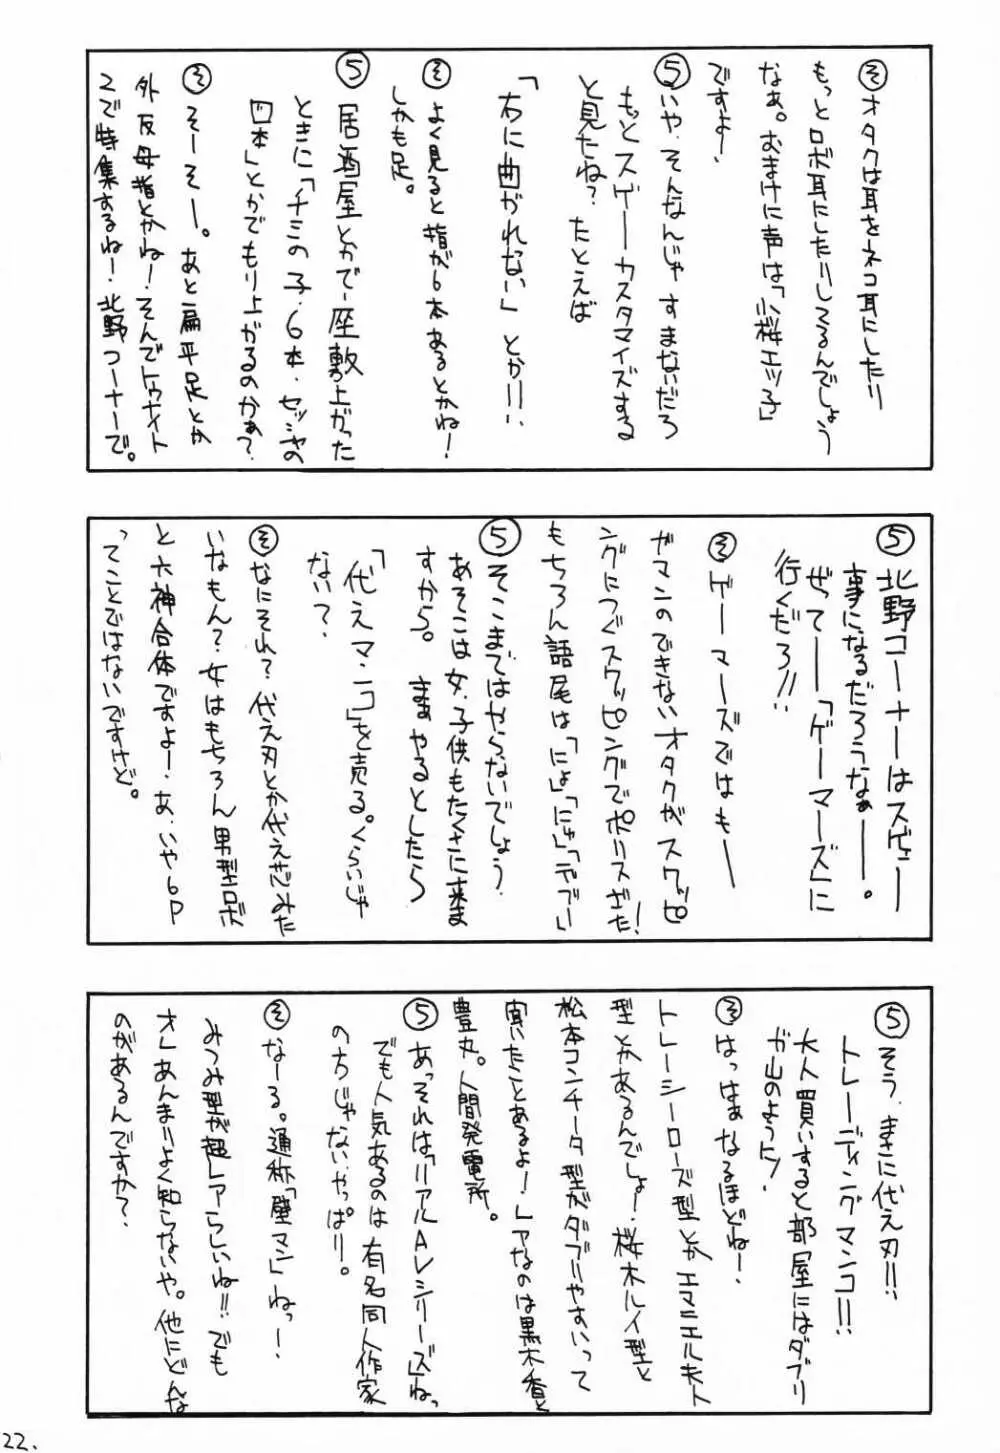 そオタクは耳をネコ耳にしたり
もっとロボ耳にしたりしてるんでしょう
なぁ。おまけに声は「小桜エツ子」
ですよー
5いや、そんなんじゃすまないだろ
もっとスゲーカスタマイズする
と見たね？たとえば
「右に曲がれない」とかーー！！
そよく見ると指が6本あるとかね！
しかも足。
5居酒屋とかでー座敷上がった
ときに「チミの子・6本・セッシャの
四本」とかでもり上がるのかぁ？
そそーそー。あと扁平足とか
外反母指とかね！そんでトゥナイト
2で特集するね！北野コーナーで。
5北野コーナーはスゲェー
事になるだろうなぁー。
ぜってー「ゲーマーズ」に
行くだろ!!
そゲーマーズではもー
ガマンのできないオタクがスワッピ
ングにつぐスワッピングでポリスざた！
もちろん語尾は「にょ」「にゅ」「でがい
5そこまではやらないでしょう。
あそこは女、子供もたくさんに来ま
すから。まぁやるとしたら
「代えマンコ」を売る。くらいじゃ
ない？
そなにそれ？代え刃とか代え芯みた
いなもん？女はもちろん男型ロボ
と六神合体ですよー。あ、いや6P
ってことではないですけど。
5そう、まさに代え刃!!
トレーディングマンコ!!
大人買いすると部屋にはダブリ
が山のように！
そはっはぁなるほどねー！
トレーシーローズ型とかエマニエル夫人
型とかあるんでしょー。桜木ルイ型と
松本コンチータ型がダブリやすいって
聞いたことあるよー！レアなのは黒木香と
豊丸。人間発電所。
5あっそれは「リアルAVシリーズ」ねっ
でも人気あるのは有名同人作家
のちじゃない、やっぱり。
そなーる。通称「壁マン」ねっー！
みつみ型が超レアらしいね!!でも
オレあんまりよく知らないや。他にどんな
のがあるんですか？
22.